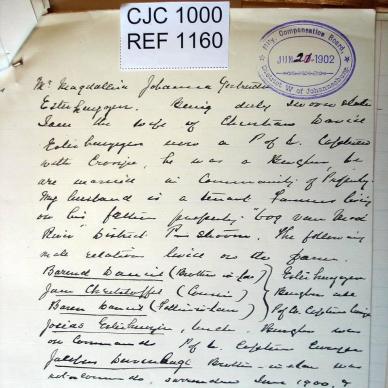 CJC 1000
REF 1160
Mty. Compensation Board,
JUN 21 1902
District W of Johannesburg
Mrs Magdalena Johanna Gertruida
Esterhuyzen. Being duly sworn states
I am the wife of Christian David
Esterhuyzen now a P of W. Captured
with Cronje, he was a Burgher, we
are married in Community of Property.
My husband is a tenant Farmer living
on his father's property
River District P. The following
male relations lived on the farm.
Barend Daniel (Brother in law) Esterhuyzen
Jan Christoffel (Cousin) Burghers all
Baren Daniel (Father in law) P of W. Captured Cronje
Josias Esterhuyzen, Burgher was
on Commando P of W. Captured Cronje
Brother in law was
not on commando, surrendered June 1900, &